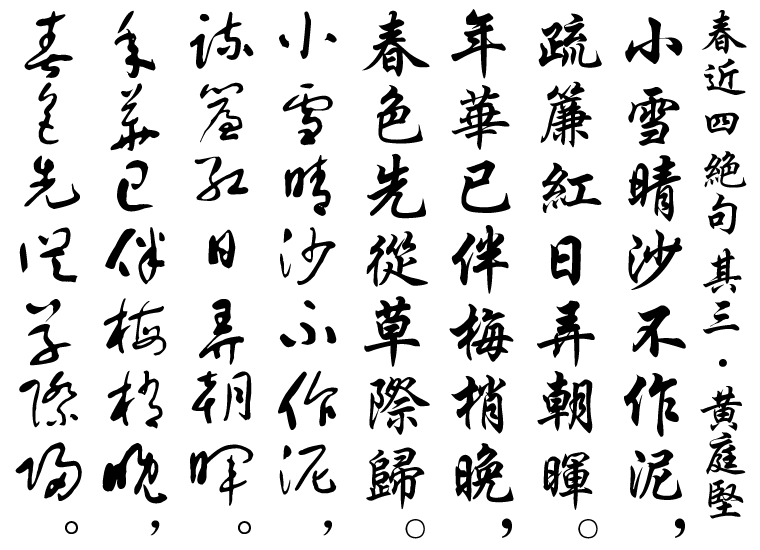 春近四絶句其三·黃庭堅
小雪晴沙不作泥，
疏簾紅日弄朝暉。
年華已伴梅梢晚，
春色先從草際歸。
小雪晴沙不作泥，
疏簾紅日弄朝暉。
年華已伴梅梢晚，
春色先從草際歸。